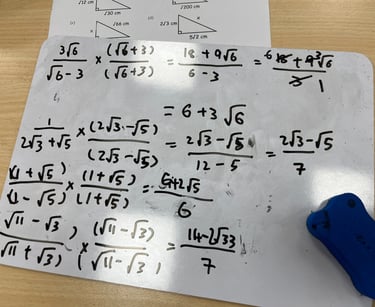 √12 cm
√30 cm
√200 cm
(c)
√66 cm
x
(d)
2√3 cm
x
5√2 cm
3√6/(√6-3) × (√6+3)/(√6+3) = (18+9√6)/(6-3) = (6 18+9 3√6)/(3 1)
= 6+3√6
1/(2√3+√5) × (2√3-√5)/(2√3-√5) = (2√3-√5)/(12-5) = (2√3-√5)/7
(1+√5)/(1-√5) × (1+√5)/(1+√5) = (6+2√5)/6
(√11-√3)/(√11+√3) × (√11-√3)/(√11-√3) = (14-2√33)/7